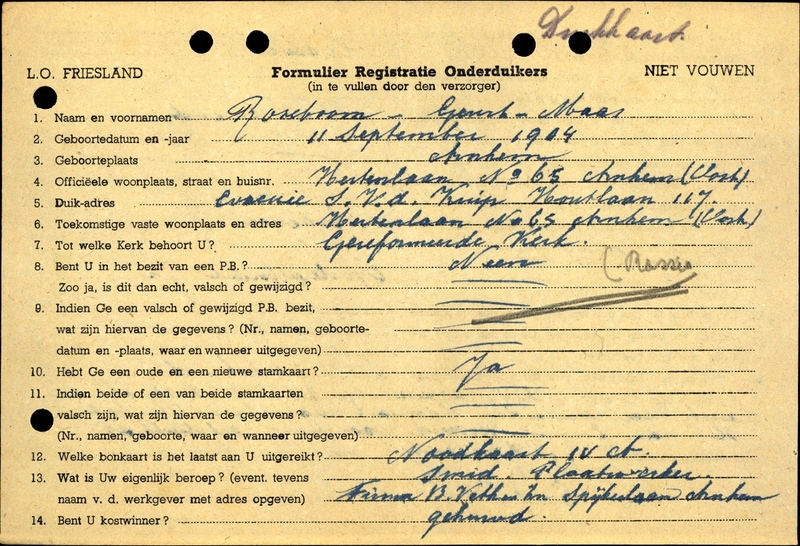 L.O. FRIESLAND
Formulier Registratie Onderduikers
NIET VOUWEN
(in te vullen door den verzorger)
1. Naam en voornamen Rozeboom - Geurt - Maas
2. Geboortedatum en -jaar 11 September 1904
3. Geboorteplaats Arnhem
4. Officiëele woonplaats, straat en huisnr. Hertenlaan No 65 Arnhem (Oost)
5. Duik-adres Evacuie S. V.d. Kuip Houtlaan 117.
6. Toekomstige vaste woonplaats en adres Hertenlaan No 65 Arnhem (Oost)
7. Tot welke Kerk behoort U? Gereformeerde Kerk.
8. Bent U in het bezit van een P.B.? Neen
Zoo ja, is dit dan echt, valsch of gewijzigd?
9. Indien Ge een valsch of gewijzigd P.B. bezit,
wat zijn hiervan de gegevens? (Nr., namen, geboorte-
datum en -plaats, waar en wanneer uitgegeven)
10. Hebt Ge een oude en een nieuwe stamkaart? Ja
11. Indien beide of een van beide stamkaarten
valsch zijn, wat zijn hiervan de gegevens?
(Nr., namen, geboorte, waar en wanneer uitgegeven)
12. Welke bonkaart is het laatst aan U uitgereikt? Noodkaart 14
13. Wat is Uw eigenlijk beroep? (event. tevens Smid. Plaatwerker.
naam v. d. werkgever met adres opgeven) Firma B. Spijkerlaan Arnhem
14. Bent U kostwinner? gehuwd.